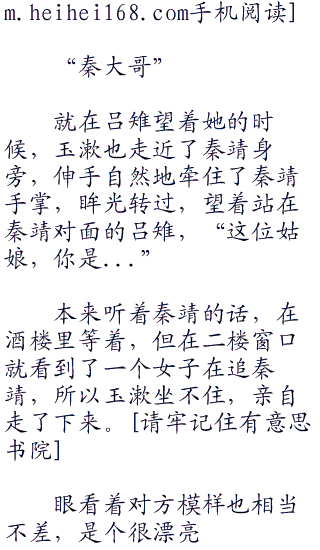 m.heihei168.com手机阅读]
“秦大哥”
就在吕雉望着她的时
候，玉漱也走近了秦靖身
旁，伸手自然地牵住了秦靖
手掌，眸光转过，望着站在
秦靖对面的吕雉，“这位姑
娘，你是...”
本来听着秦靖的话，在
酒楼里等着，但在二楼窗口
就看到了一个女子在追秦
靖，所以玉漱坐不住，亲自
走了下来。[请牢记住有意思
书院]
眼看着对方模样也相当
不差，是个很漂亮